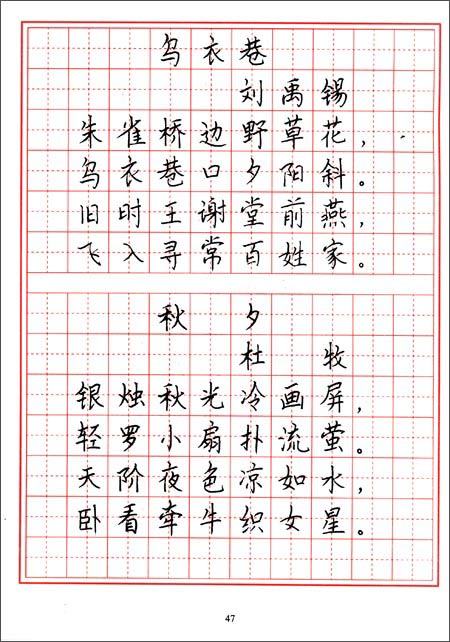 乌衣巷
刘禹锡
朱雀桥边野草花，
乌衣巷口夕阳斜。
旧时王谢堂前燕，
飞入寻常百姓家。
秋夕
杜牧
银烛秋光冷画屏，
轻罗小扇扑流萤。
天阶夜色凉如水，
卧看牵牛织女星。
47